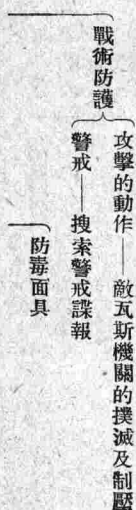 戰術防護
攻擊的動作——敵瓦斯機關的撲滅及制壓
警戒——搜索警戒諜報
防毒面具